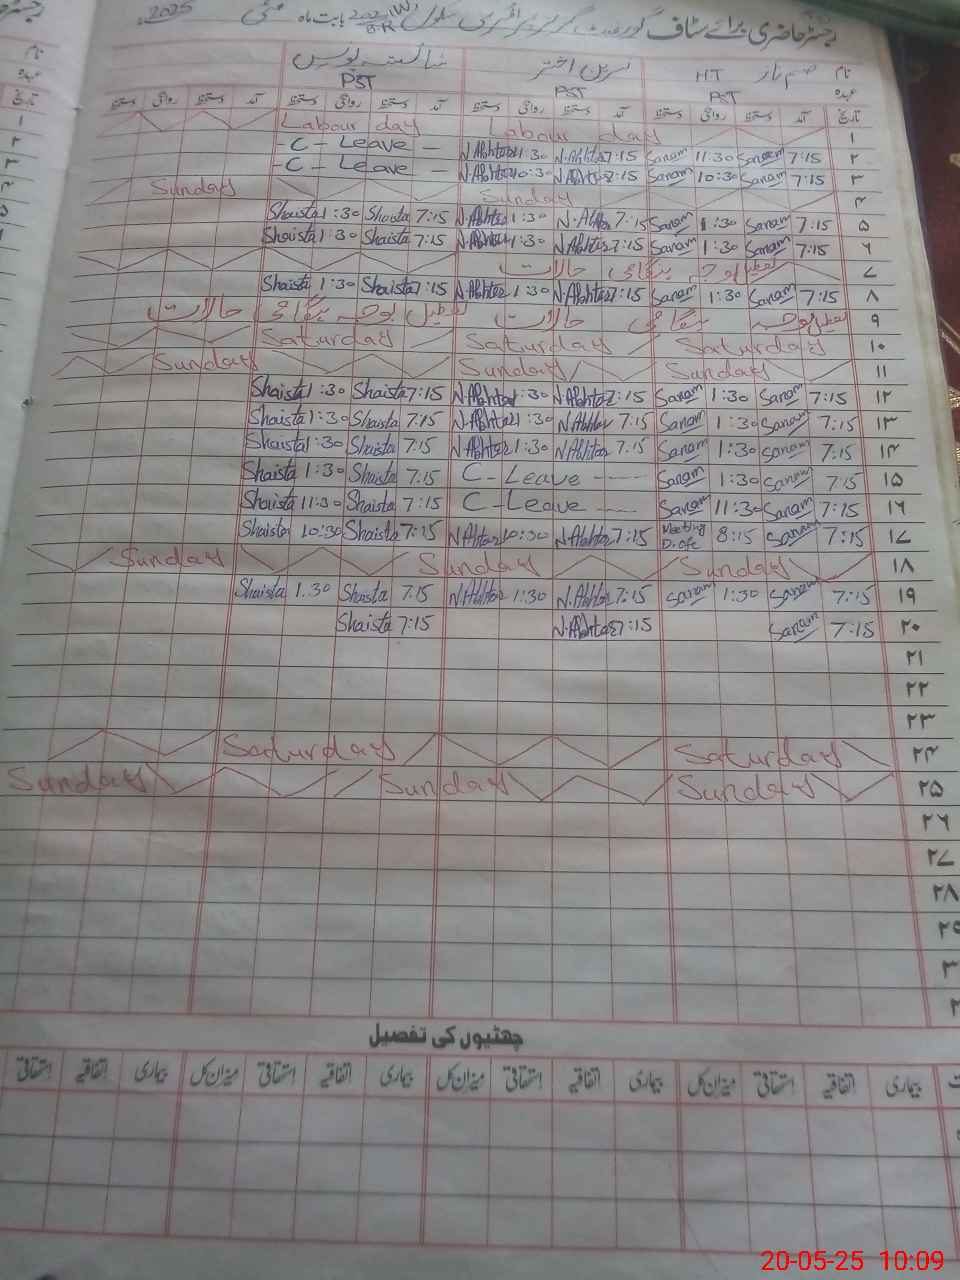 رجسٹر حاضری برائے سٹاف گورنمنٹ گرلز پرائمری سکول بابت ماہ مئی 2025
نام صنم ناز HT نسرین اختر شائستہ
عہدہ PST PST PST
تاریخ آمد دستخط روانگی دستخط آمد دستخط روانگی دستخط آمد دستخط روانگی دستخط آمد دستخط روانگی دستخط
۱ Labour day Labour day
۲ 7:15 Sanam 11:30 Sanam 7:15 N.Akhtar 11:30 N.Akhtar - C - Leave -
۳ 7:15 Sanam 10:30 Sanam 7:15 N.Akhtar 10:30 N.Akhtar - C - Leave -
۴ Sunday Sunday
۵ 7:15 Sanam 1:30 Sanam 7:15 N.Akhtar 1:30 N.Akhtar 7:15 Shaista 1:30 Shaista
۶ 7:15 Sanam 1:30 Sanam 7:15 N.Akhtar 1:30 N.Akhtar 7:15 Shaista 1:30 Shaista
۷ تعطیل بوجہ ہنگامی حالات
۸ 7:15 Sanam 1:30 Sanam 7:15 N.Akhtar 1:30 N.Akhtar 7:15 Shaista 1:30 Shaista
۹ تعطیل بوجہ ہنگامی حالات تعطیل بوجہ ہنگامی حالات
۱۰ Saturday Saturday Saturday
۱۱ Sunday Sunday Sunday
۱۲ 7:15 Sanam 1:30 Sanam 7:15 N.Akhtar 1:30 N.Akhtar 7:15 Shaista 1:30 Shaista
۱۳ 7:15 Sanam 1:30 Sanam 7:15 N.Akhtar 1:30 N.Akhtar 7:15 Shaista 1:30 Shaista
۱۴ 7:15 Sanam 1:30 Sanam 7:15 N.Akhtar 1:30 N.Akhtar 7:15 Shaista 1:30 Shaista
۱۵ 7:15 Sanam 1:30 Sanam C - Leave ---- 7:15 Shaista 1:30 Shaista
۱۶ 7:15 Sanam 11:30 Sanam C - Leave ---- 7:15 Shaista 11:30 Shaista
۱۷ 7:15 Sanam 8:15 Meeting D.ofc 7:15 N.Akhtar 10:30 N.Akhtar 7:15 Shaista 10:30 Shaista
۱۸ Sunday Sunday Sunday
۱۹ 7:15 Sanam 1:30 Sanam 7:15 N.Akhtar 1:30 N.Akhtar 7:15 Shaista 1:30 Shaista
۲۰ 7:15 Sanam 7:15 N.Akhtar 7:15 Shaista
۲۱
۲۲
۲۳
۲۴ Saturday Saturday
۲۵ Sunday Sunday Sunday
۲۶
۲۷
۲۸
۲۹
چھٹیوں کی تفصیل
بیماری اتفاقیہ استحقاقی میزان کل بیماری اتفاقیہ استحقاقی میزان کل بیماری اتفاقیہ استحقاقی میزان کل بیماری اتفاقیہ استحقاقی
20-05-25 10:09